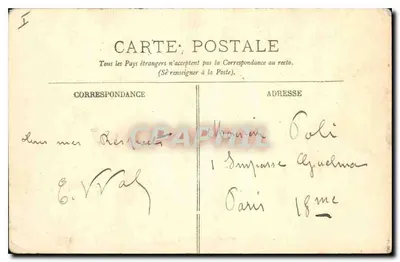 I
CARTE POSTALE
Tous les Pays étrangers n'acceptent pas la Correspondance au recto.
(Se renseigner à la Poste).
CORRESPONDANCE
ADRESSE
mes Respects
E. Vidal
Poli
1 Impasse Guelma
Paris 18me